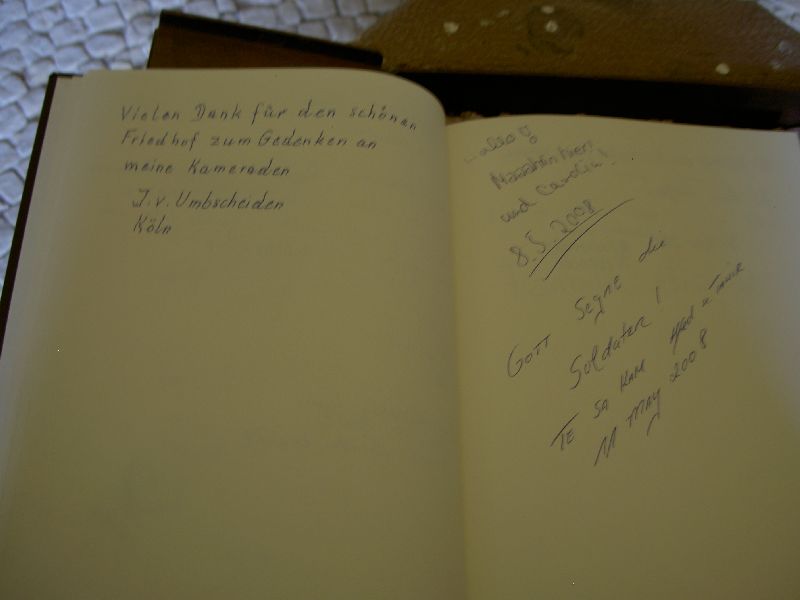 Vielen Dank für den schönen
Friedhof zum Gedenken an
meine Kameraden
J. v. Umbscheiden
Köln
und Carolin!
8.5.2008
Gott Segne die
Soldaten!
11 May 2008